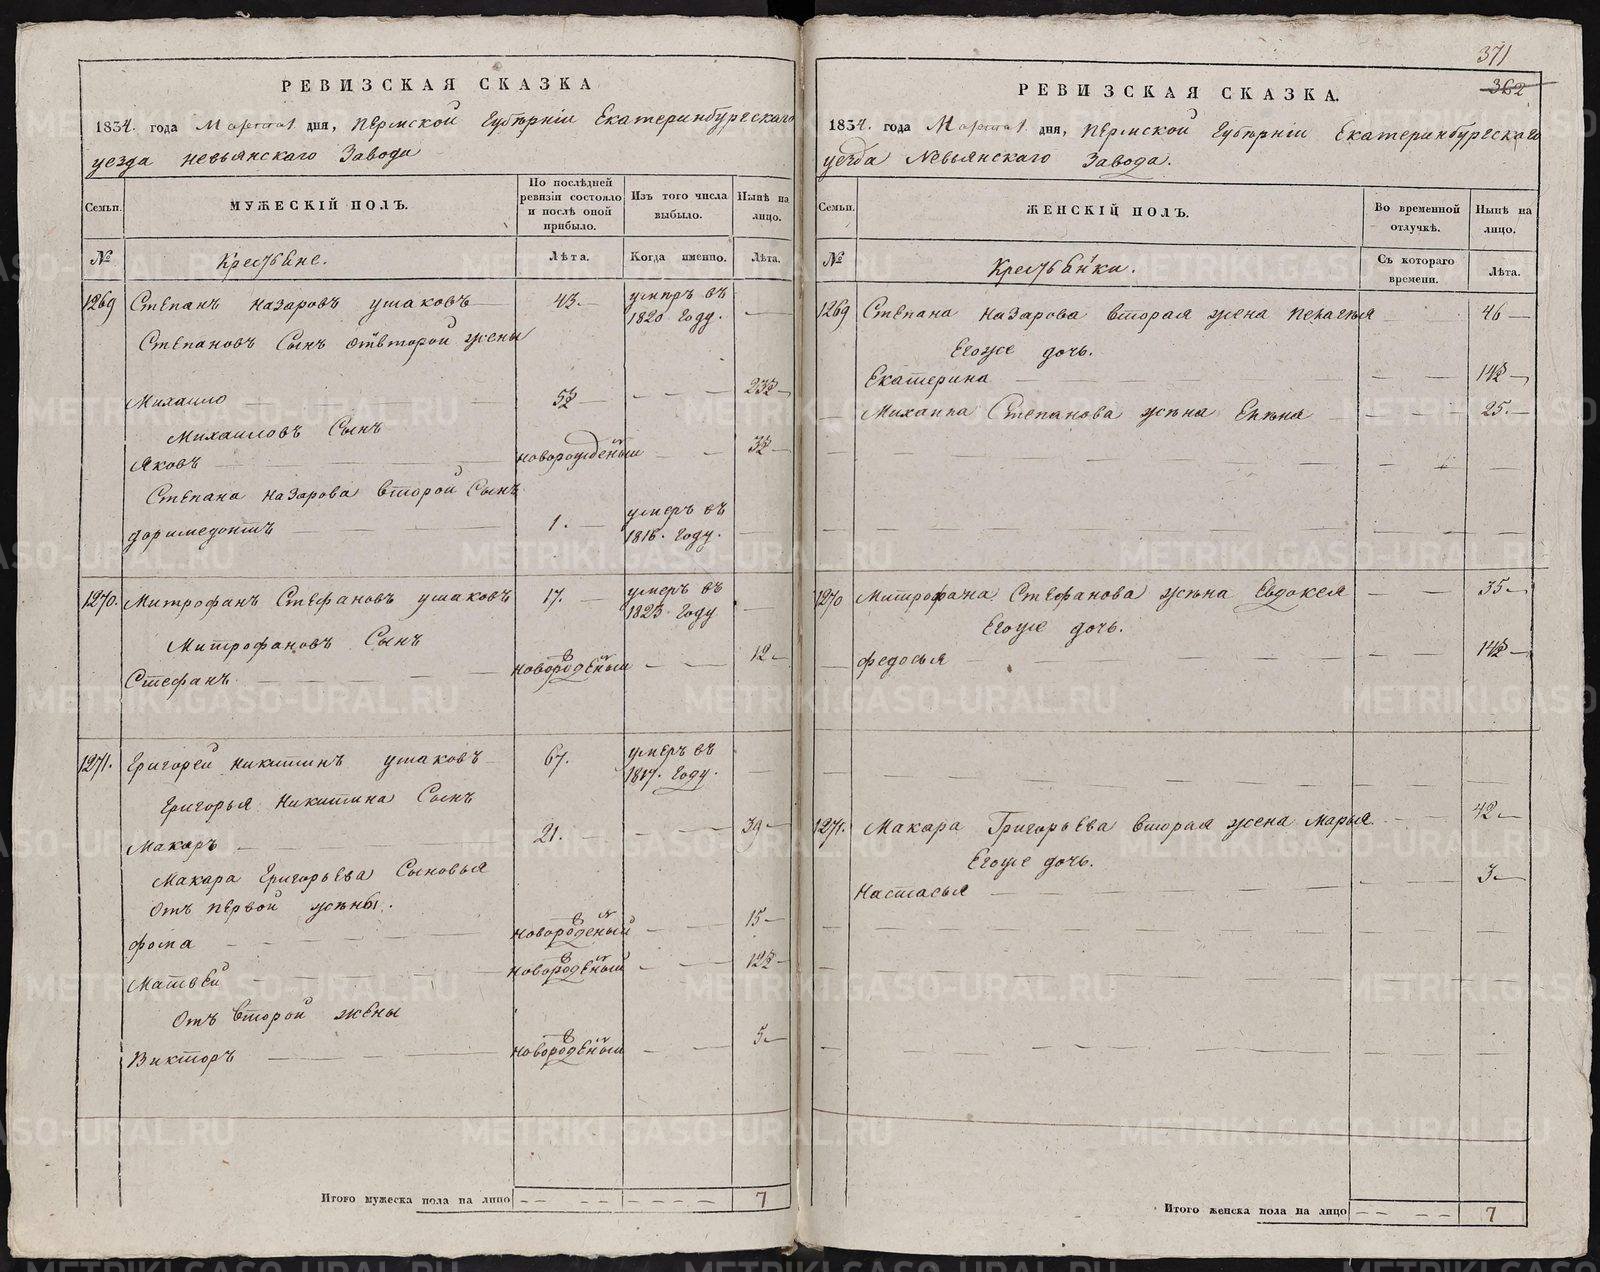 371
362
РЕВИЗСКАЯ СКАЗКА
1834. года Марта 1 дня, Пермской Губѣрніи Екатеринбургскаго
уезда Невьянскаго Завода
Семьи.
МУЖЕСКІЙ ПОЛЪ.
По послѣдней ревизіи состояло и послѣ оной прибыло.
Изъ того числа выбыло.
Нынѣ на лицо.
№
Крестьяне.
Лѣта.
Когда именно.
Лѣта.
1269 Степанъ Назаровъ Ушаковъ 43. умеръ въ 1820 году.
Степановъ Сынъ отвторой жены
Михаило 5½ 23½
Михаиловъ Сынъ
Яковъ новорожденый 3½
Степана Назарова второй Сынъ
Доримедонтъ 1. умеръ въ 1816. году.
1270. Митрофанъ Стефановъ Ушаковъ 17. умеръ въ 1823 году
Митрофановъ Сынъ
Стефанъ новорожденый 12
1271. Григорей Никитинъ Ушаковъ 67. умеръ въ 1817. году.
Григорья Никитина Сынъ
Макаръ 21. 39
Макара Григорьева Сыновья
отъ первой жены.
Фома новорожденый 15
Матвей новорожденый 12½
отъ второй жены
Викторъ новорожденый 5
Итого мужеска пола на лицо 7
РЕВИЗСКАЯ СКАЗКА.
1834. года Марта 1. дня, Пермской Губѣрніи Екатеринбургскаго
уезда Невьянскаго Завода.
Семьи.
ЖЕНСКІЙ ПОЛЪ.
Во временной отлучкѣ.
Нынѣ на лицо.
№
Крестьянки.
Съ котораго времени.
Лѣта.
1269 Степана Назарова вторая жена Пелагея 46
Егоже дочь.
Екатерина 14½
Михаила Степанова жѣна Елѣна 25.
1270 Митрофана Стефанова жѣна Евдокея 35
Егоже дочь.
Федосья 14½
1271. Макара Григорьева вторая жена Марья 42
Егоже дочь.
Настасья 3
Итого женска пола на лицо 7
METRIKI.GASO-URAL.RU